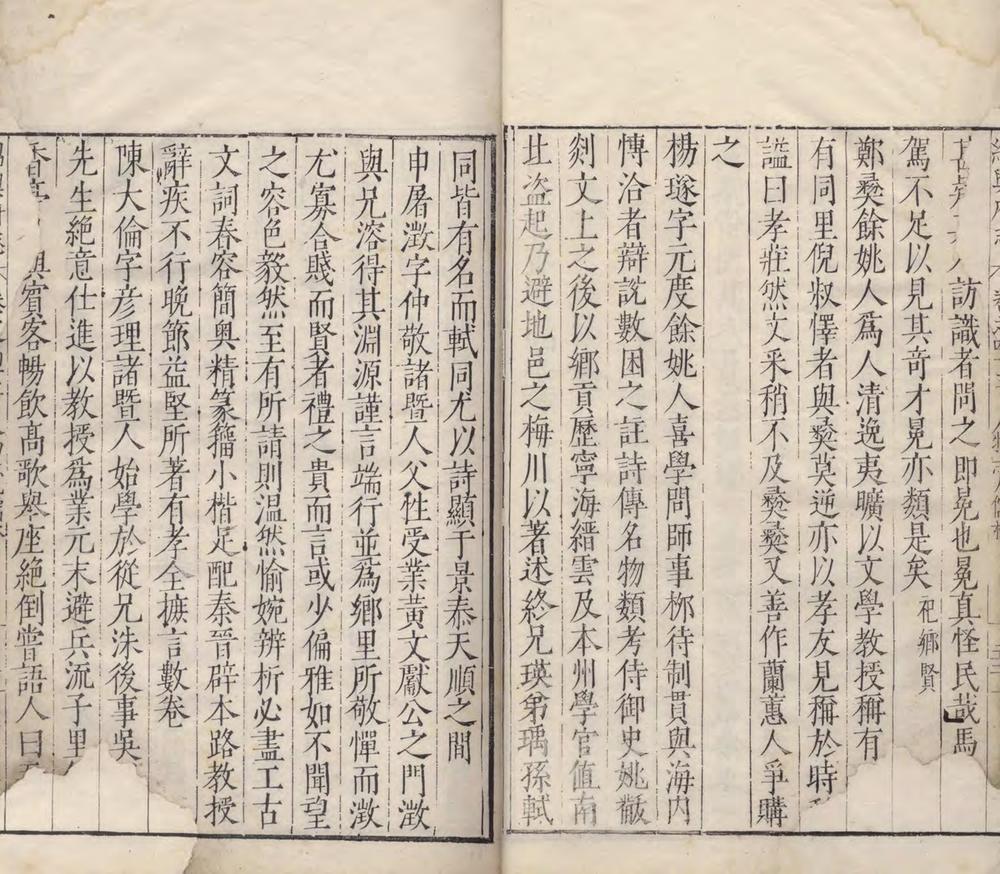 訪識者問之即冕也冕真怪民哉馬
駕不足以見其竒才冕亦類是矣祀鄉賢
鄭彝餘姚人爲人清逸夷曠以文學教授稱有
有同里倪叔懌者與彝莫逆亦以孝友見稱於時
謚曰孝莊然文采稍不及彝彝又善作蘭蕙人爭購
之
楊璲字元度餘姚人喜學問師事栁待制貫與海内
慱洽者辯説數困之註詩傳名物類考侍御史姚黻
剡文上之後以鄉貢歷寧海縉雲及本州學官值南
北盗起乃避地邑之梅川以著述終兄瑛弟瑀孫軾
同皆有名而軾同尤以詩顯于景泰天順之間
申屠澂字仲敬諸暨人父性受業黄文獻公之門澂
與兄溶得其淵源謹言端行並爲鄉里所敬憚而澂
尤寡合賤而賢者禮之貴而言或少偏雅如不聞望
之容色毅然至有所請則温然愉婉辨析必盡工古
文詞舂容簡奥精篆籀小楷足配秦晉辟本路教授
辭疾不行晚節益堅所著有孝全摭言數卷
陳大倫字彦理諸暨人始學於從兄洙後事吳
先生絶意仕進以教授爲業元末避兵流子里
與賓客暢飲髙歌舉座絶倒嘗語人曰